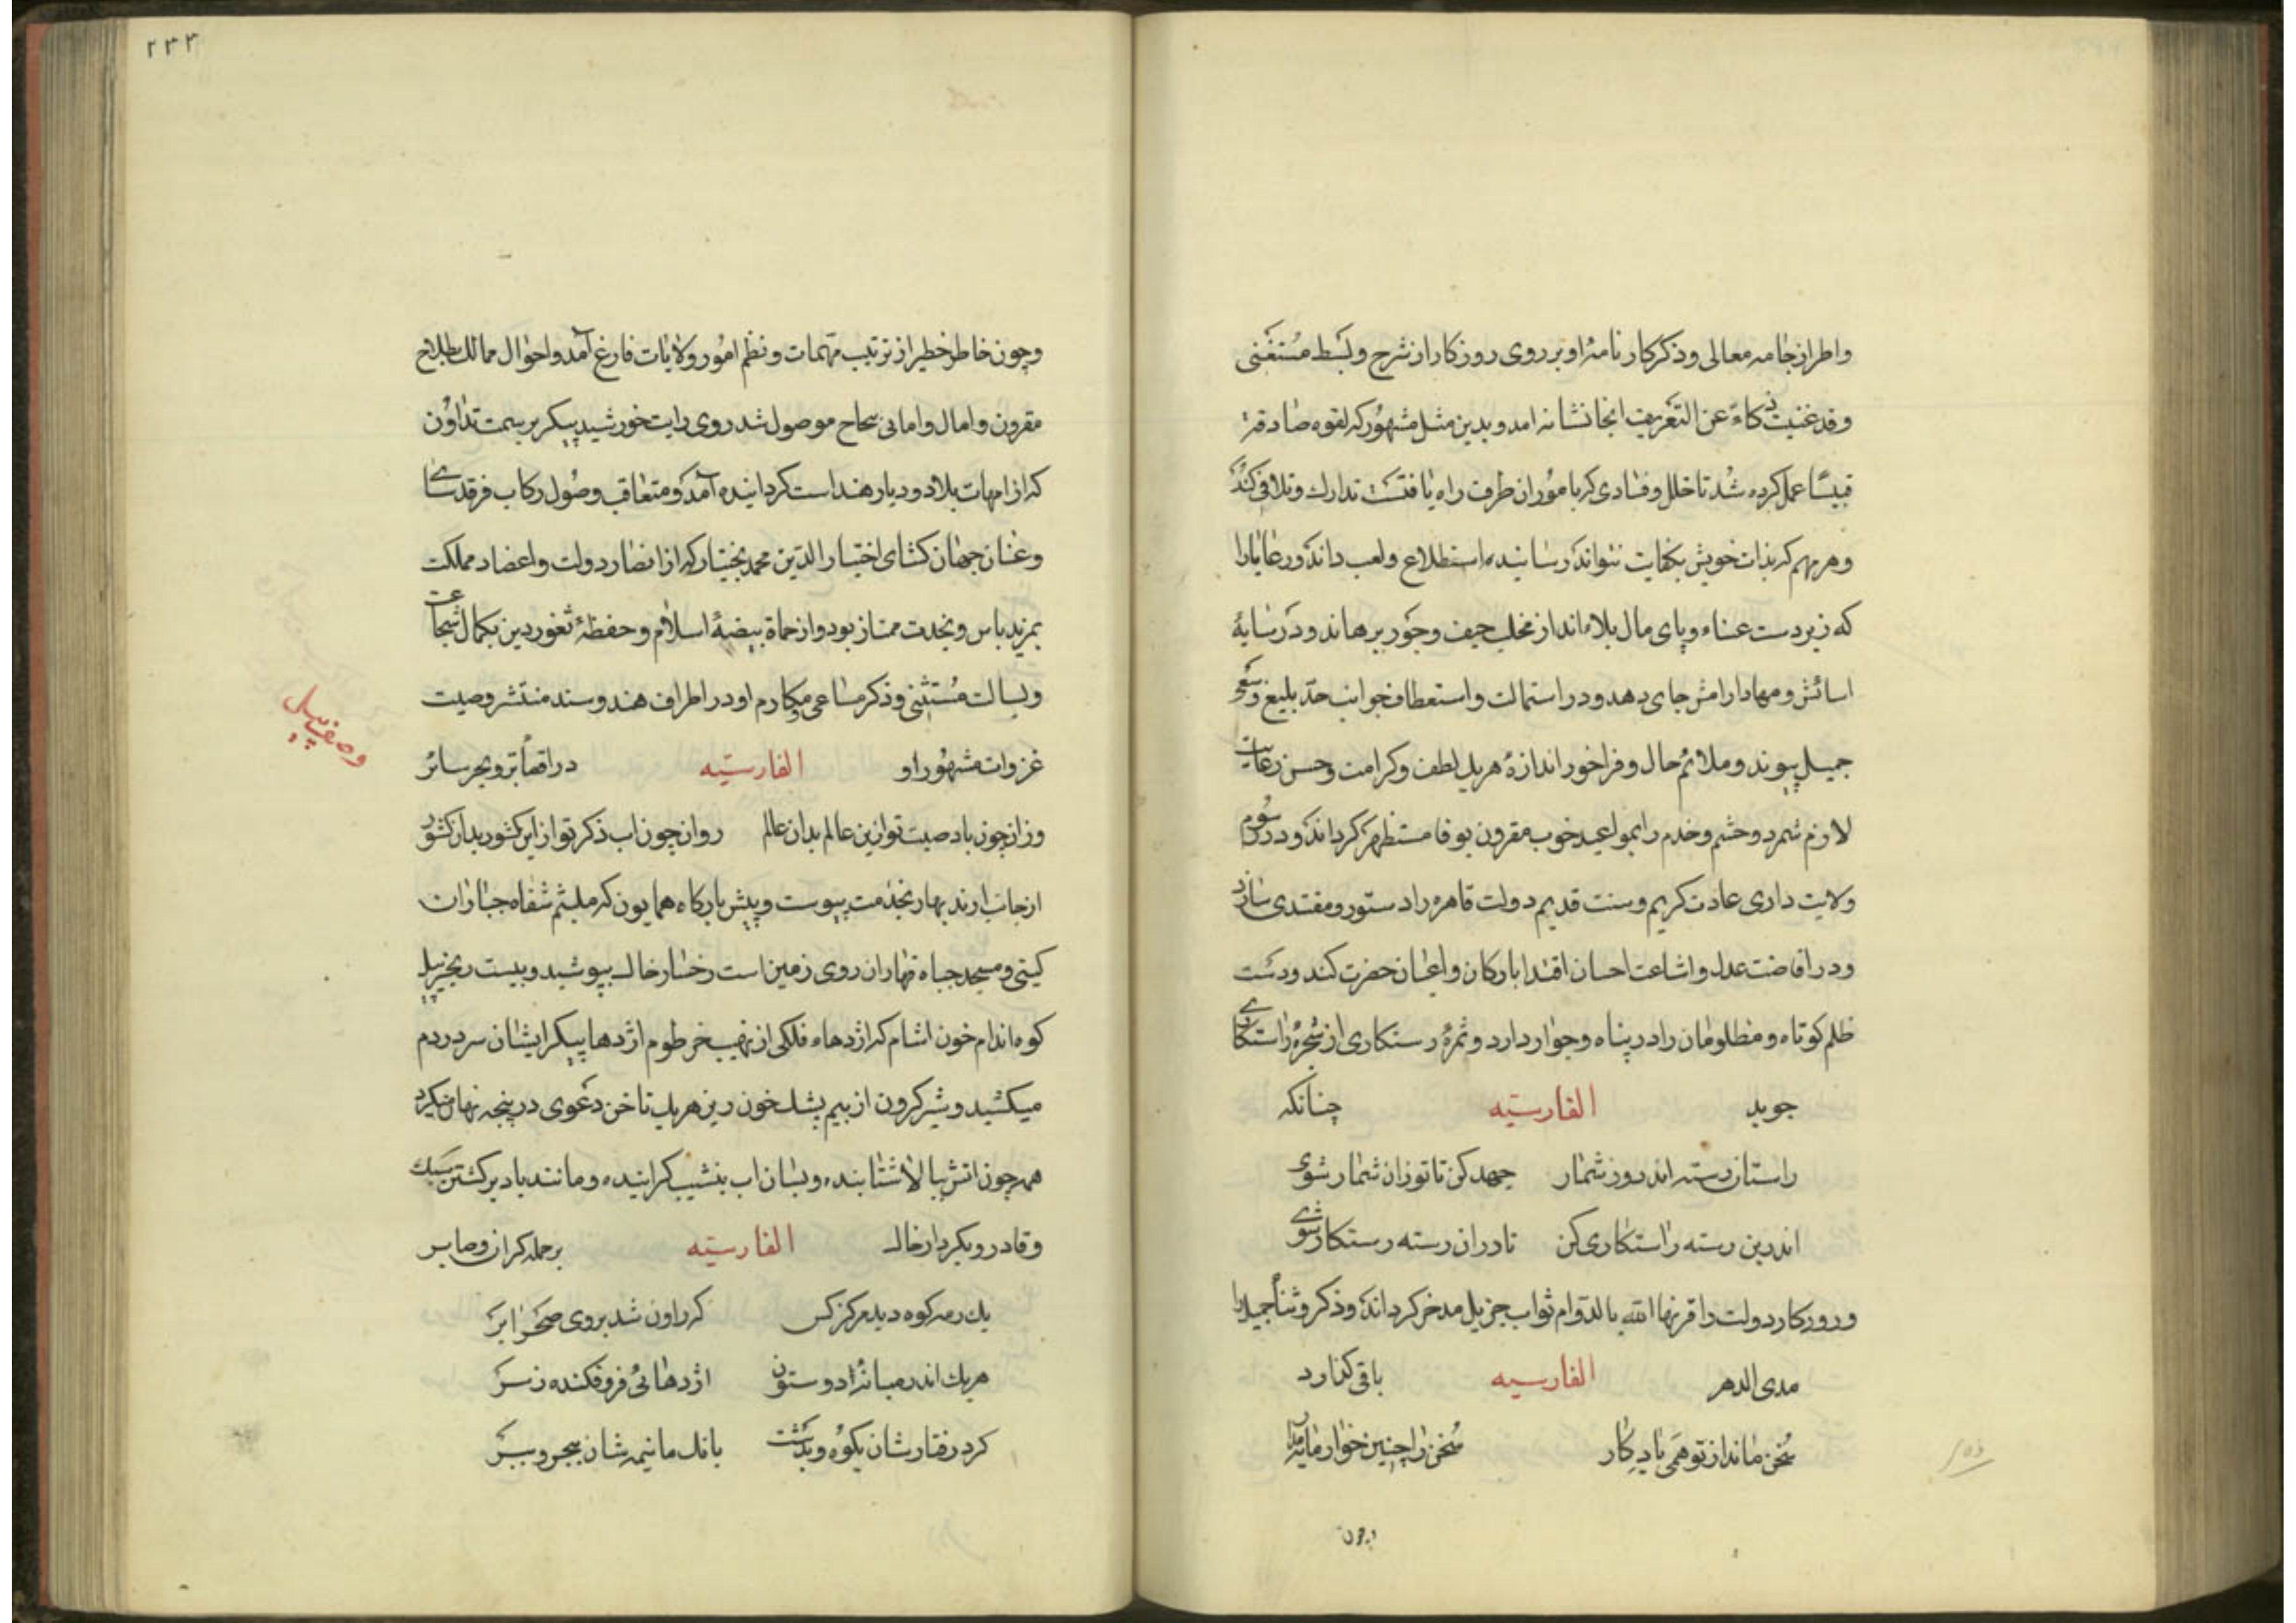 واطراز جامه معالی وذکر کار نامۀ او بر روی روزکار از شرح وبسط مستغنی
وقد غنیت ذکاء عن التعریف ایجا نشانه امد وبدین مثل مشهور که لقوه صادفت
قبیسًا عمل کرده شد تا خلل وفسادی که بامور ان طرف راه یافتست تدارك وتلافی کند
وهر مهم که بذات خویش بکفایت نتواند رسانید استطلاع ولعب داند ورعایا را
که زیر دست عناء وپای مال بلاء اند از مخلب حیف وجور برهاند ودر سایۀ
اسائش ومهاد ارامش جای دهد ودر استمالت واستعطاف جوانب جدّ بلیغ وسعی
جمیل پیوندد وملائم حال وفراخور اندازۀ هریك لطف وکرامت وحسن رعایت
لازم شمرد وحشم وخدم را بمواعید خوب مقرون بوفا مستظهر کرداند ودر رسوم
ولایت داری عادت کریم وسنت قدیم دولت قاهره را دستور ومقتدی سازد
ودر افاضت عدل واشاعت احسان اقتدا بارکان واعیان حضرت کند ودست
ظلم کوتاه ومظلومان را در پناه وجوار دارد وثمرۀ رستکاری از شجرۀ راستکاری
جوید الفارسیّه چنانکه
راستان رسته اند روز شمار جهد کن تا تو زان شمار شوی
اندرین رسته راستکاری کن تا دران رسته رستکار شوی
وروزکار دولت را قرنها الله بالدوام ثواب جزیل مدخر کرداند وذکر وثناء جمیل را
مدی الدهر الفارسیه باقی کذارد
سخن ماند از تو همی یادکار سخن را چنین خوار مایه مدار
چون
۲۳۳
وچون خاطر خطیر از ترتیب مهمات ونظم امور ولایات فارغ آمد واحوال ممالك بصلاح
مقرون وامال وامانی بنجاح موصول شد روی رایت خورشید پیکر بر سمت تداون
که از امهات بلاد ودیار هند است کردانیده آمد ومتعاقب وصول رکاب فرقد سای
وعنان جهان کشای اختیار الدین محمد بختیار که از انصار دولت واعضاد مملکت
بمزید باس ونجدت ممتاز بود واز حماة بیضۀ اسلام وحفظۀ ثغور دین بکمال شجاعت
وبسالت مستثنی وذکر مساعی مکارم او در اطراف هند وسند منتشر وصیت
غزوات مشهور او الفارسیّه در اقصاء بر وبحر سائر
وصف پیل
وزان چون باد صیت تو ازین عالم بدان عالم روان چون اب ذکر تو از این کشور بدان کشور
از جانب ارند بهار بخدمت پیوست وپیش بارکاه همایون که ملثم شفاه جباران
کیتی ومسجد جباه قهاران روی زمین است رخسار خاك بپوشید وبیست زنجیر پیل
کوه اندام خون اشام که اژدهاء فلکی از نهیب خرطوم اژدها پیکر ایشان سر در دم
میکشید وشیر کردون از بیم یشك خون ریز هریك ناخن دعوی در پنجه نهان میکرد
همه چون اتش ببالا شتابنده وبسان اب بنشیب کراینده ومانند باد بر کشتن سبك
وقادر وبکردار خاك الفارسیّه بر حمله کران وصابر
یك رمه کوه دید هرکز کس که راون شد بروی صحرا بر
هریك اندر میانۀ دو ستون اژدهائی فرو فکنده ز سر
کرد رفتارشان بکوه وبدشت بانك مانیمه شان ببحر وببر